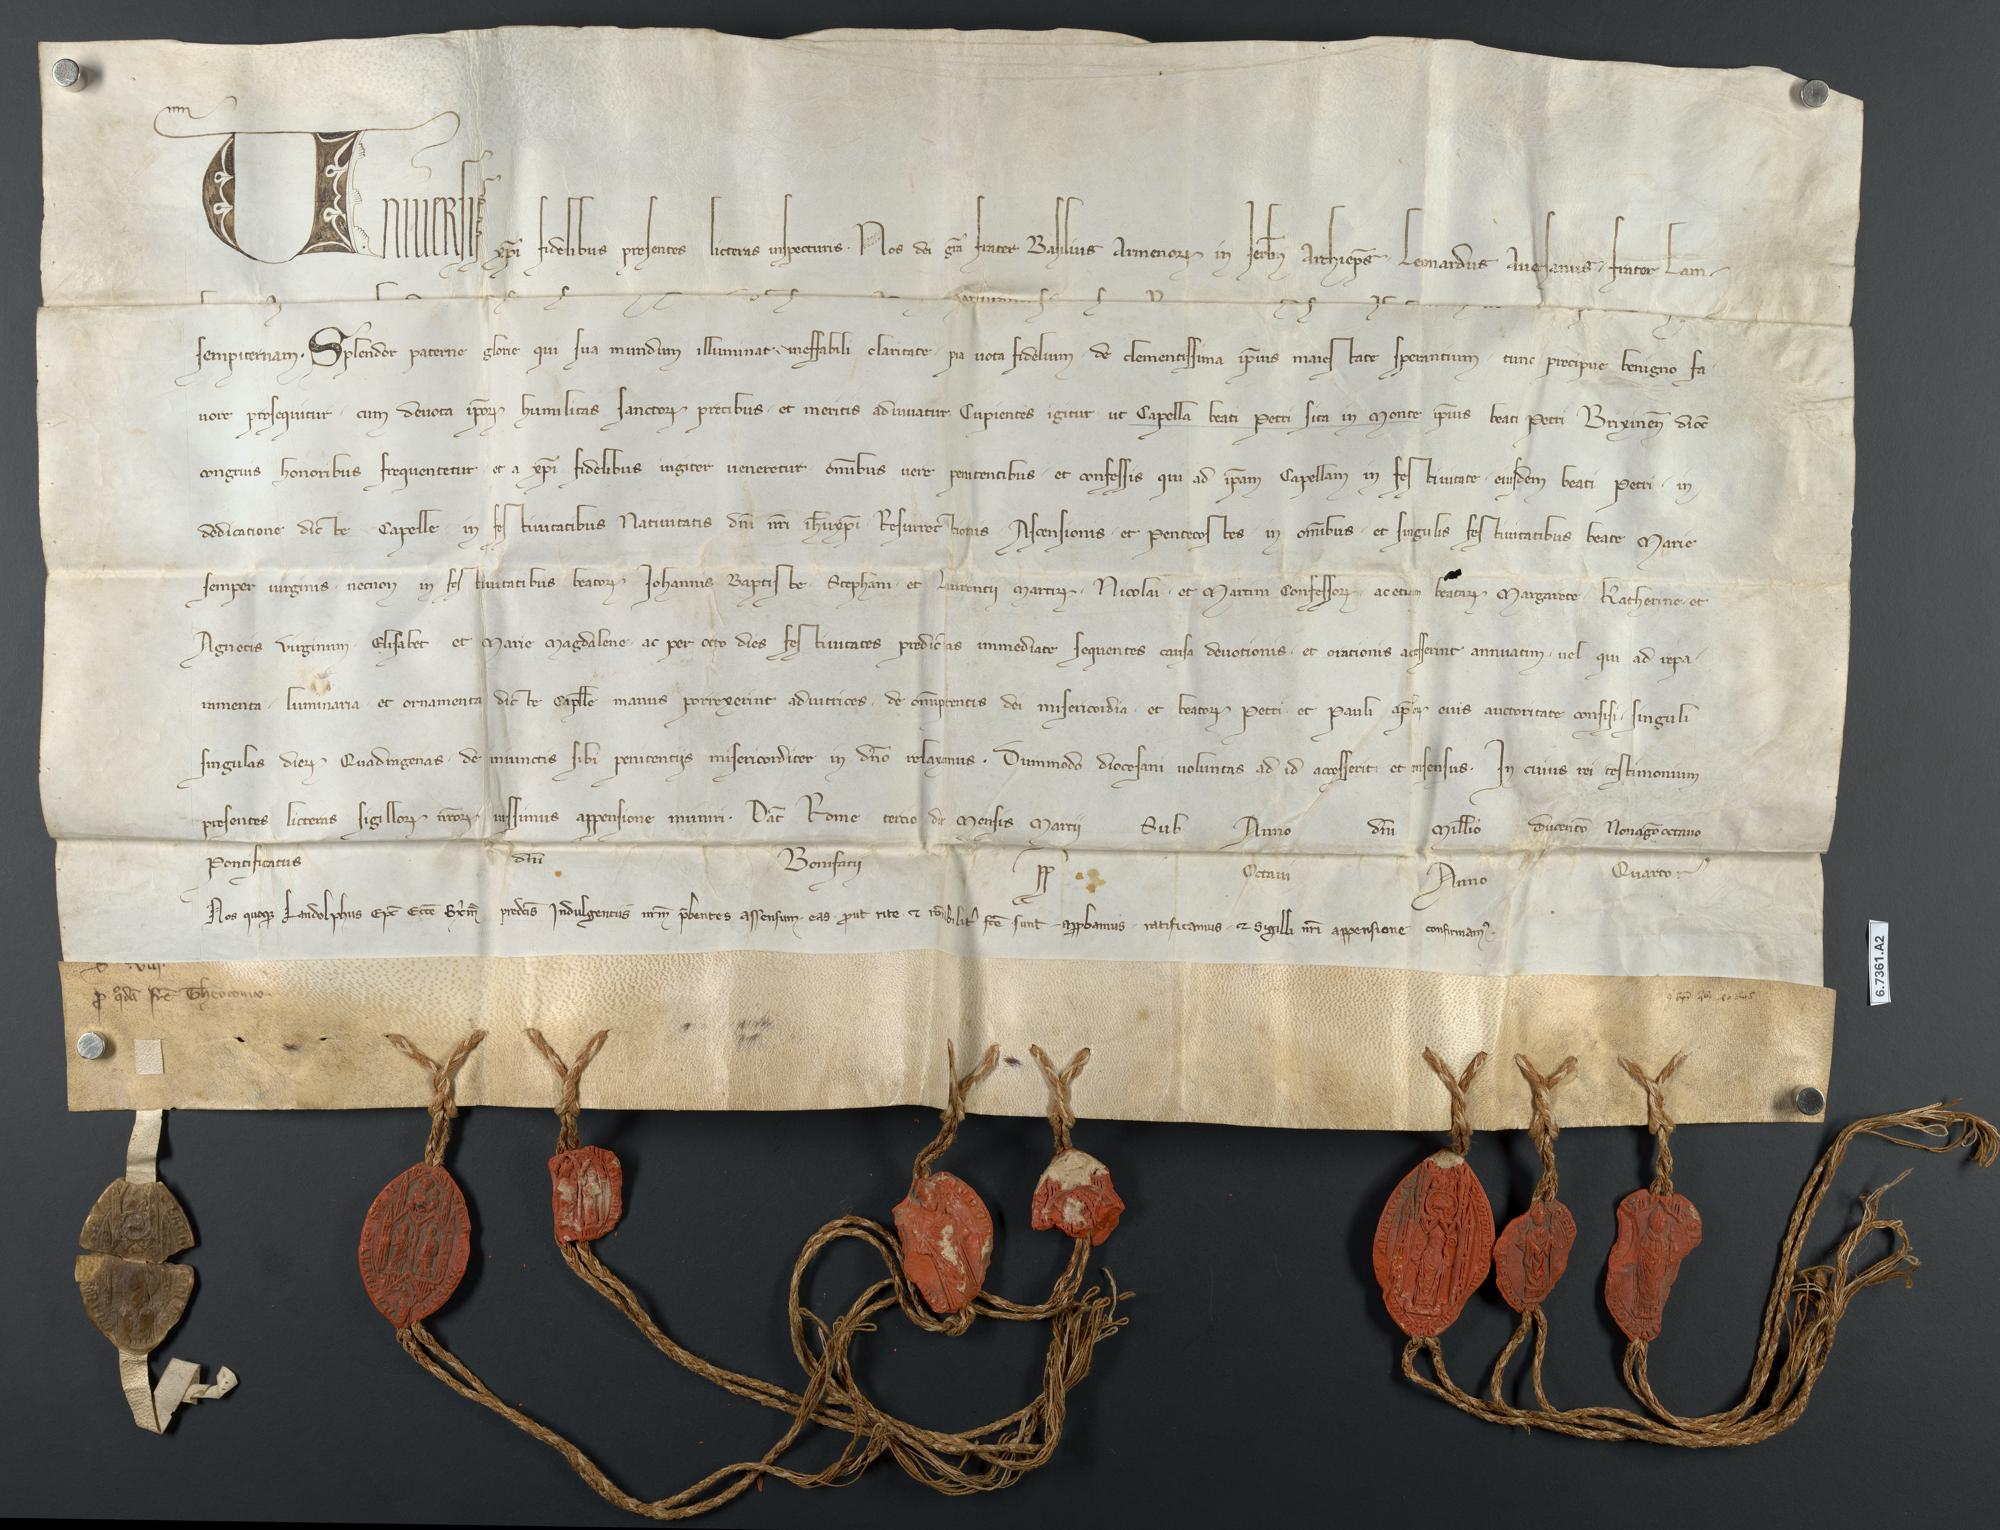 Uniuersis xp̄i fidelibus presentes licteras inspecturis. Nos dei gr̄a frater Basilius Armenorꝝ in Ierl̄m Archiep̄s. Leonardus Auersanus. frater Lam-
sempiternam. Splendor paterne glorie qui sua mundum illuminat ineffabili claritate pia uota fidelium de clementissima ip̄ius maiestate sperantium tunc precipue benigno fa-
uore prosequitur. cum deuota ip̄orꝝ humilitas sanctorꝝ precibus et meritis adiuuatur. Cupientes igitur ut Capella beati Petri sita in Monte ip̄ius beati Petri Brixineñ dioc̄
congruis honoribus frequentetur et a xp̄i fidelibus iugiter ueneretur om̄ibus uere penitentibus et confessis qui ad ip̄am Capellam in festiuitate eiusdem beati Petri. in
dedicatione dicte Capelle. in festiuitatibus Natiuitatis dn̄i nr̄i ih̄u xp̄i. Resurrectionis. Ascensionis. et Pentecostes. in om̄ibus et singulis festiuitatibus beate Marie
semper uirginis. necnon in festiuitatibus beatorꝝ Iohannis Baptiste. Stephani et Laurentii Martirꝝ. Nicolai et Martini Confessorꝝ. ac etiam beatarꝝ Margarete. Katherine et
Agnetis uirginum. Elisabet et Marie Magdalene. ac per octo dies festiuitates predictas immediate sequentes causa deuotionis et orationis accesserint annuatim. uel qui ad repa-
ramenta. luminaria et ornamenta dicte Capelle manus porrexerint adiutrices. de om̄ipotentis dei misericordia. et beatorꝝ Petri et Pauli ap̄lorꝝ eius auctoritate confisi. singuli
singulas dierꝝ Quadragenas de iniunctis sibi penitentiis misericorditer in dn̄o relaxamus. Dummodo diocesani uoluntas ad id accesserit et consensus. In cuius rei testimonium
presentes licteras sigillorꝝ nr̄orꝝ iussimus appensione muniri. Dat̄ Rome tercio die Mensis Martii Sub Anno dn̄i Mill̄io ducentō Nonagō octauo
Pontificatus dn̄i Bonifatii pp̄ Octaui Anno Quarto
Nos quoqꝫ Landolphus Ep̄c Ecc̄e Brix̄ predc̄is Indulgentiis nr̄m p̄bentes assensum. eas prout rite et rōnabilit̄ fc̄e sunt approbamus. ratificamus. et Sigilli nr̄i appensione confirmamꝰ.